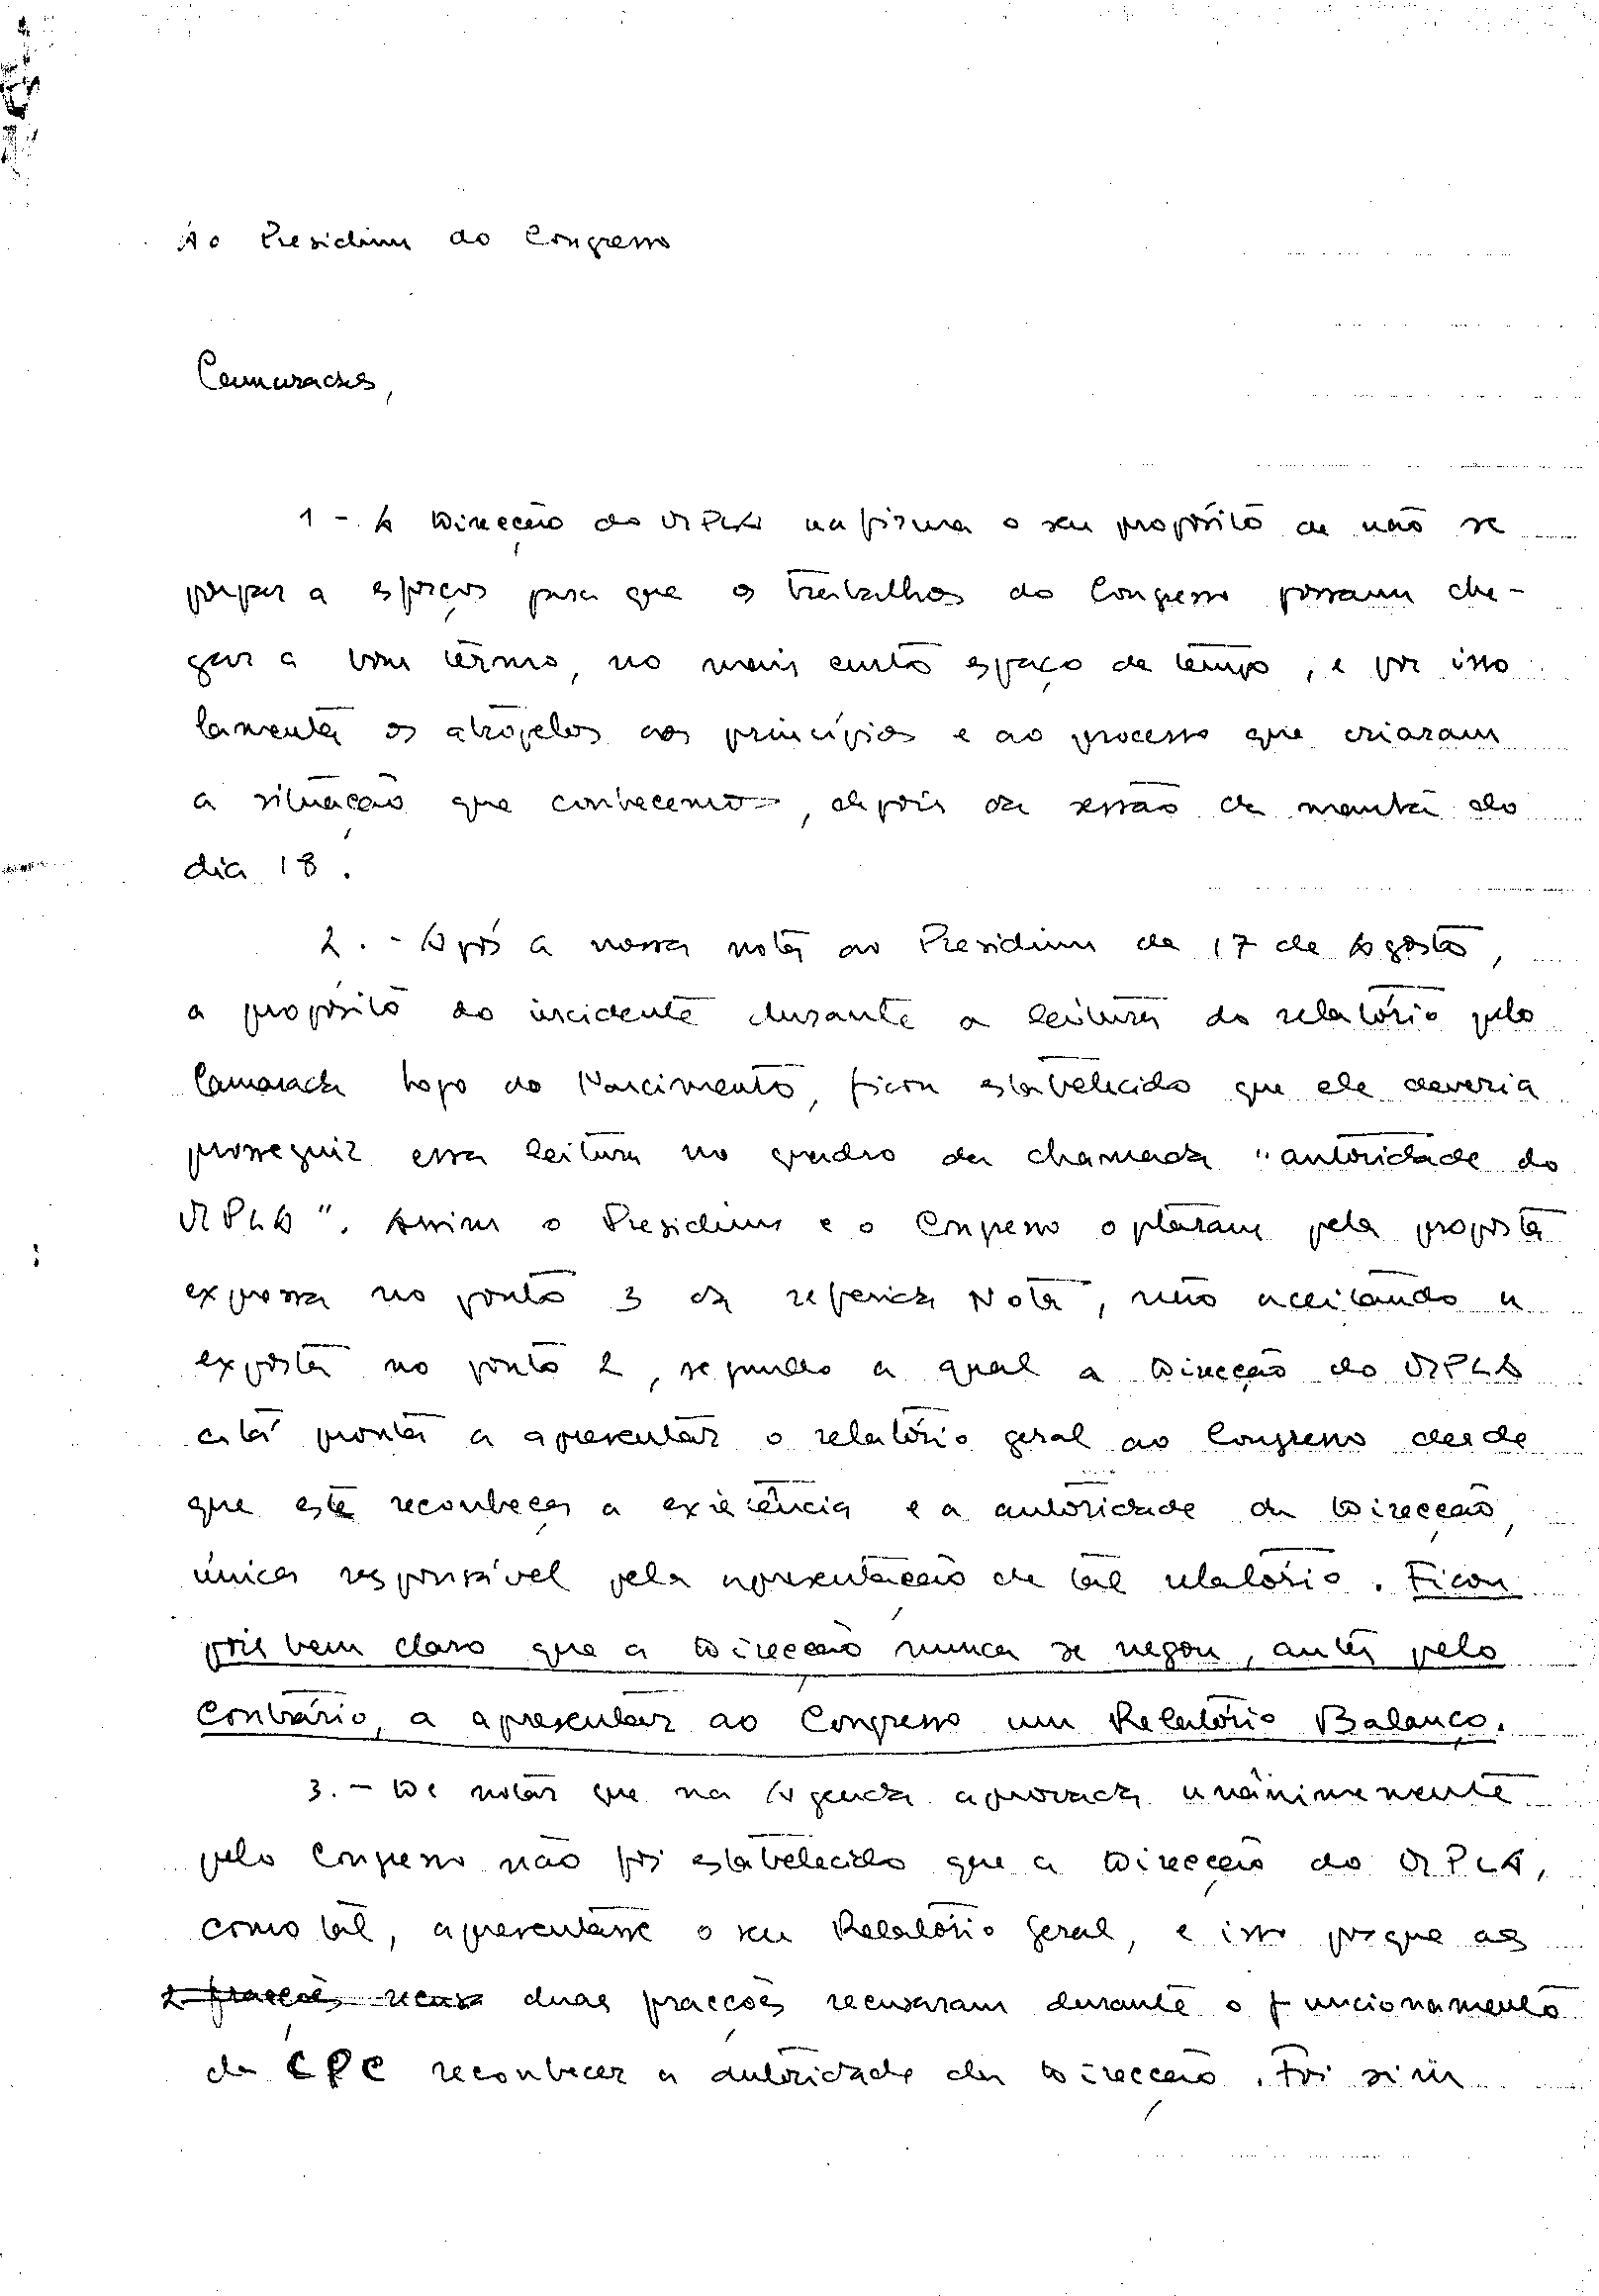 Ao Presidium do Congresso
Camaradas,
1 - A Direcção do MPLA reafirma o seu propósito de não se
poupar a esforços para que os trabalhos do Congresso possam che-
gar a bom têrmo, no mais curto espaço de tempo, e por isso
lamenta os atropelos aos princípios e ao processo que criaram
a situação que conhecemos, depois da sessão da manhã do
dia 18.
2. - Após a nossa nota ao Presidium de 17 de Agosto,
a propósito do incidente durante a leitura do relatório pelo
Camarada Lopo do Nascimento, ficou estabelecido que ele deveria
prosseguir essa leitura no quadro da chamada "autoridade do
MPLA". Assim o Presidium e o Congresso optaram pela proposta
expressa no ponto 3 da referida Nota, não aceitando a
exposta no ponto 2, segundo a qual a Direcção do MPLA
está pronta a apresentar o relatório geral ao Congresso desde
que este reconheça a existência e a autoridade da Direcção,
única responsável pela apresentação de tal relatório. Ficou
pois bem claro que a Direcção nunca se negou, antes pelo
contrário, a apresentar ao Congresso um Relatório Balanço.
3. - De notar que na Agenda aprovada unânimemente
pelo Congresso não foi estabelecido que a Direcção do MPLA,
como tal, apresentasse o seu Relatório Geral, e isso porque as
2 fracções recusa duas fracções recusaram durante o funcionamento
da CPC reconhecer a autoridade da Direcção. Foi sim